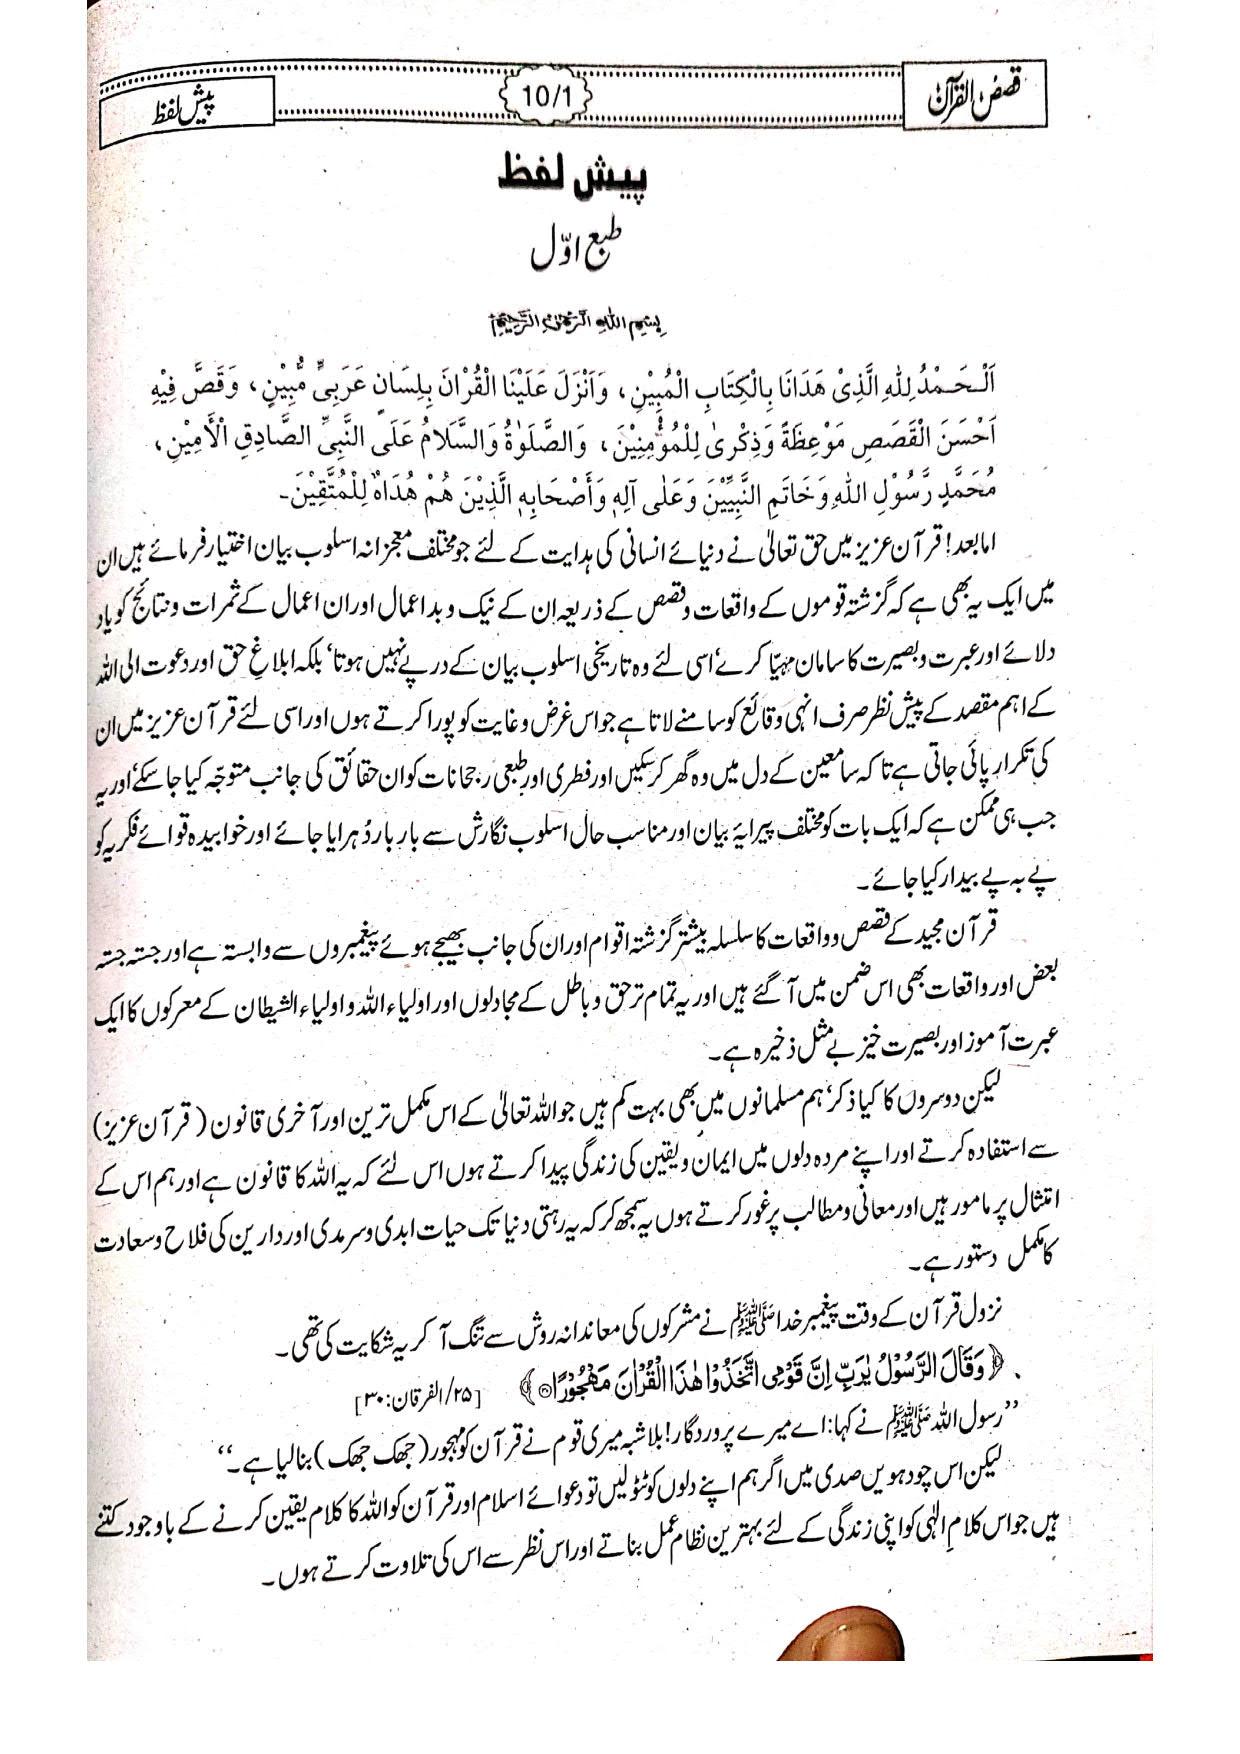 قصص القرآن
10/1
پیش لفظ
پیش لفظ
طبع اوّل
بِسْمِ اللهِ الرَّحْمٰنِ الرَّحِيْمِ
اَلْحَمْدُ لِلّٰهِ الَّذِیْ هَدَانَا بِالْكِتَابِ الْمُبِيْنِ، وَاَنْزَلَ عَلَيْنَا الْقُرْانَ بِلِسَانٍ عَرَبِیٍّ مُّبِيْنٍ، وَقَصَّ فِيْهِ
اَحْسَنَ الْقَصَصِ مَوْعِظَةً وَذِكْریٰ لِلْمُؤْمِنِيْنَ، وَالصَّلٰوةُ وَالسَّلَامُ عَلَی النَّبِیِّ الصَّادِقِ الْأَمِيْنِ،
مُحَمَّدٍ رَّسُوْلِ اللهِ وَخَاتَمِ النَّبِيِّيْنَ وَعَلٰی آلِهٖ وَأَصْحَابِهِ الَّذِيْنَ هُمْ هُدَاةٌ لِلْمُتَّقِيْنَ۔
اما بعد! قرآن عزیز میں حق تعالیٰ نے دنیائے انسانی کی ہدایت کے لئے جو مختلف معجزانہ اسلوب بیان اختیار فرمائے ہیں ان
میں ایک یہ بھی ہے کہ گزشتہ قوموں کے واقعات و قصص کے ذریعہ ان کے نیک و بد اعمال اور ان اعمال کے ثمرات و نتائج کو یاد
دلائے اور عبرت و بصیرت کا سامان مہیّا کرے، اسی لئے وہ تاریخی اسلوب بیان کے درپے نہیں ہوتا، بلکہ ابلاغِ حق اور دعوت الی اللہ
کے اہم مقصد کے پیش نظر صرف انہی وقائع کو سامنے لاتا ہے جو اس غرض و غایت کو پورا کرتے ہوں اور اسی لئے قرآن عزیز میں ان
کی تکرار پائی جاتی ہے تاکہ سامعین کے دل میں وہ گھر کر سکیں اور فطری اور طبعی رجحانات کو ان حقائق کی جانب متوجّہ کیا جا سکے، اور یہ
جب ہی ممکن ہے کہ ایک بات کو مختلف پیرایۂ بیان اور مناسب حال اسلوب نگارش سے بار بار دُہرایا جائے اور خوابیدہ قوائے فکریہ کو
پے بہ پے بیدار کیا جائے۔
قرآن مجید کے قصص و واقعات کا سلسلہ بیشتر گزشتہ اقوام اور ان کی جانب بھیجے ہوئے پیغمبروں سے وابستہ ہے اور جستہ جستہ
بعض اور واقعات بھی اس ضمن میں آ گئے ہیں اور یہ تمام تر حق و باطل کے مجادلوں اور اولیاء اللہ و اولیاء الشیطان کے معرکوں کا ایک
عبرت آموز اور بصیرت خیز بے مثل ذخیرہ ہے۔
لیکن دوسروں کا کیا ذکر، ہم مسلمانوں میں بھی بہت کم ہیں جو اللہ تعالیٰ کے اس مکمل ترین اور آخری قانون (قرآن عزیز)
سے استفادہ کرتے اور اپنے مردہ دلوں میں ایمان و یقین کی زندگی پیدا کرتے ہوں اس لئے کہ یہ اللہ کا قانون ہے اور ہم اس کے
امتثال پر مامور ہیں اور معانی و مطالب پر غور کرتے ہوں یہ سمجھ کر کہ یہ رہتی دنیا تک حیات ابدی و سرمدی اور دارین کی فلاح و سعادت
کا مکمل دستور ہے۔
نزول قرآن کے وقت پیغمبر خدا ﷺ نے مشرکوں کی معاندانہ روش سے تنگ آ کر یہ شکایت کی تھی۔
﴿وَقَالَ الرَّسُوْلُ يٰرَبِّ اِنَّ قَوْمِی اتَّخَذُوْا هٰذَا الْقُرْاٰنَ مَهْجُوْرًا﴾ [۲۵/الفرقان: ۳۰]
’’رسول اللہ ﷺ نے کہا: اے میرے پروردگار! بلاشبہ میری قوم نے قرآن کو مہجور (جھک جھک) بنا لیا ہے۔‘‘
لیکن اس چودہویں صدی میں اگر ہم اپنے دلوں کو ٹٹولیں تو دعوائے اسلام اور قرآن کو اللہ کا کلام یقین کرنے کے باوجود کتنے
ہیں جو اس کلامِ الٰہی کو اپنی زندگی کے لئے بہترین نظام عمل بناتے اور اس نظر سے اس کی تلاوت کرتے ہوں۔